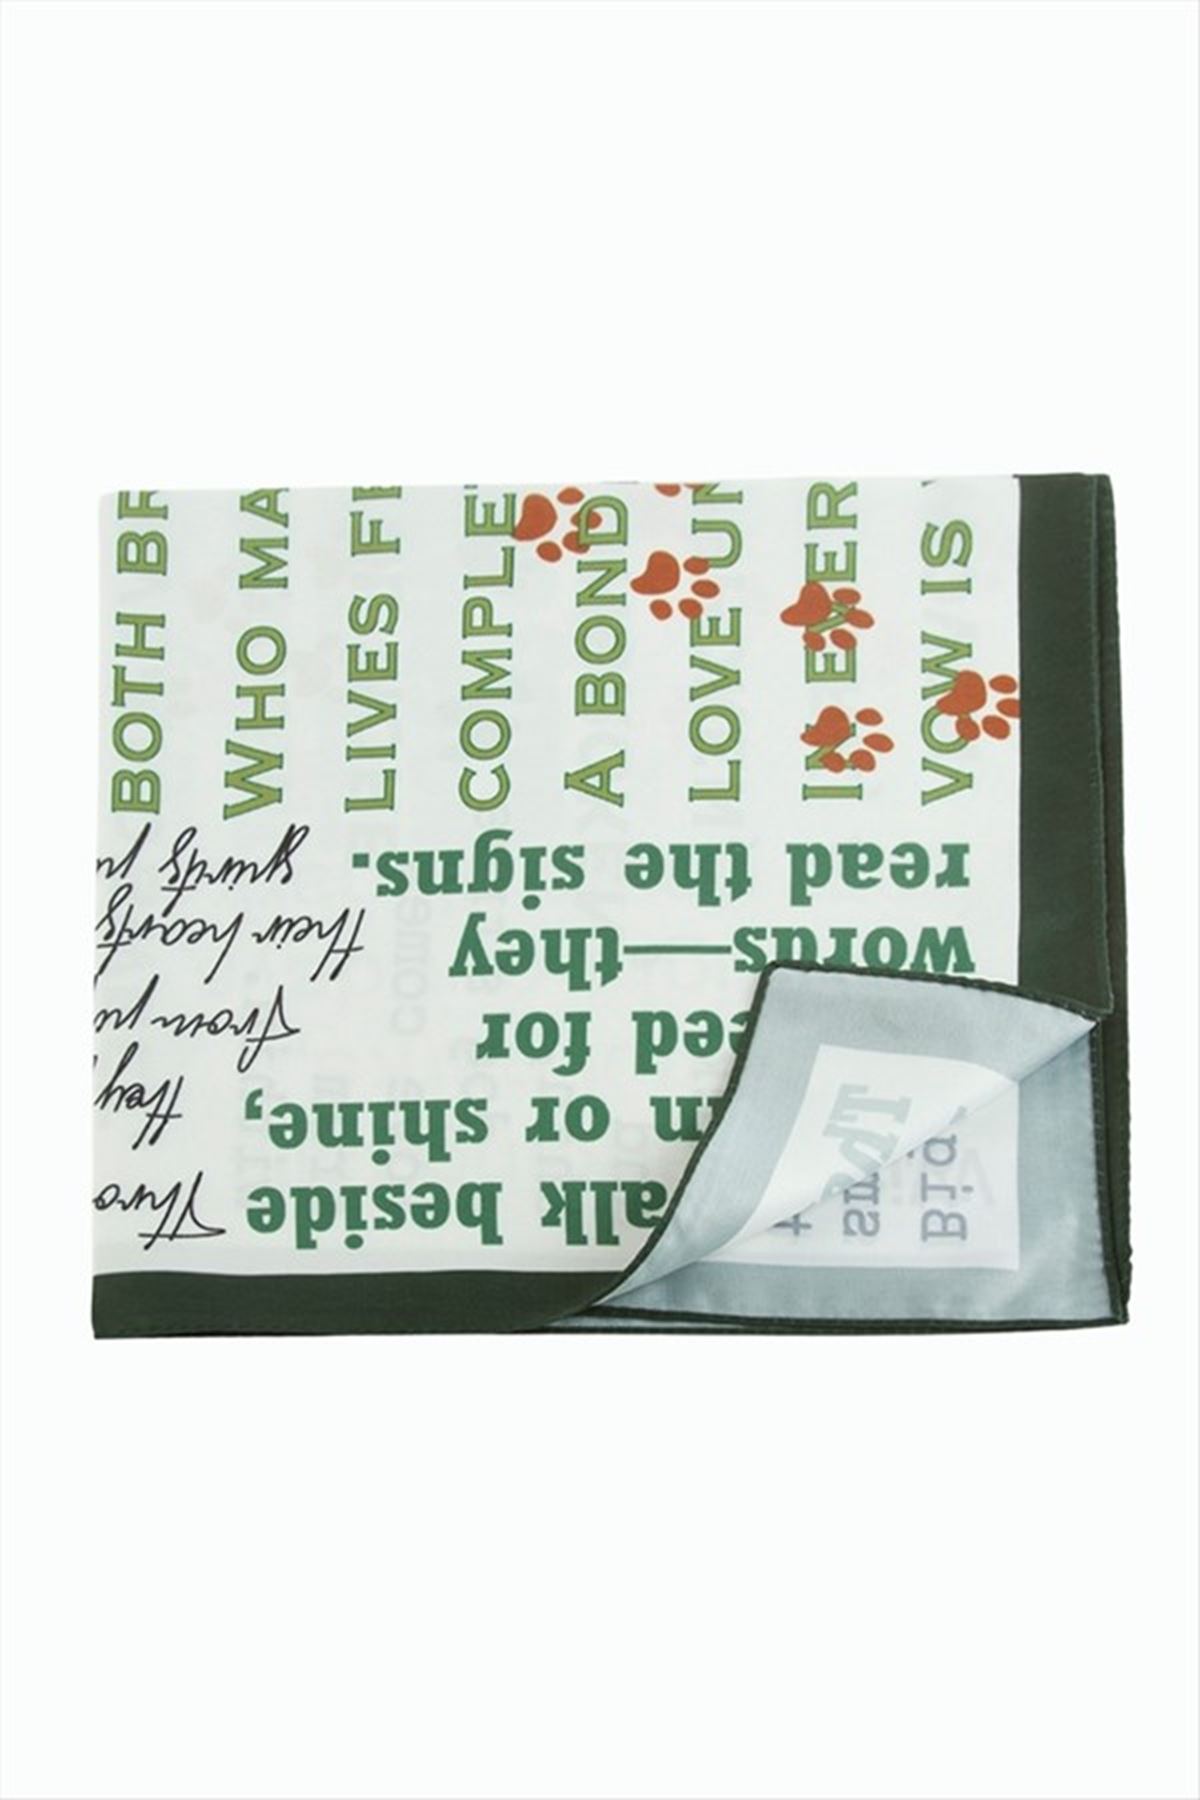 BOTH BR
WHO MA
LIVES F
COMPLE
A BOND
LOVE UN
IN EVER
VOW IS
alk beside
in or shine,
eed for
words—they
read the signs.
Thro
they
From pu
their hearts
spirits pu